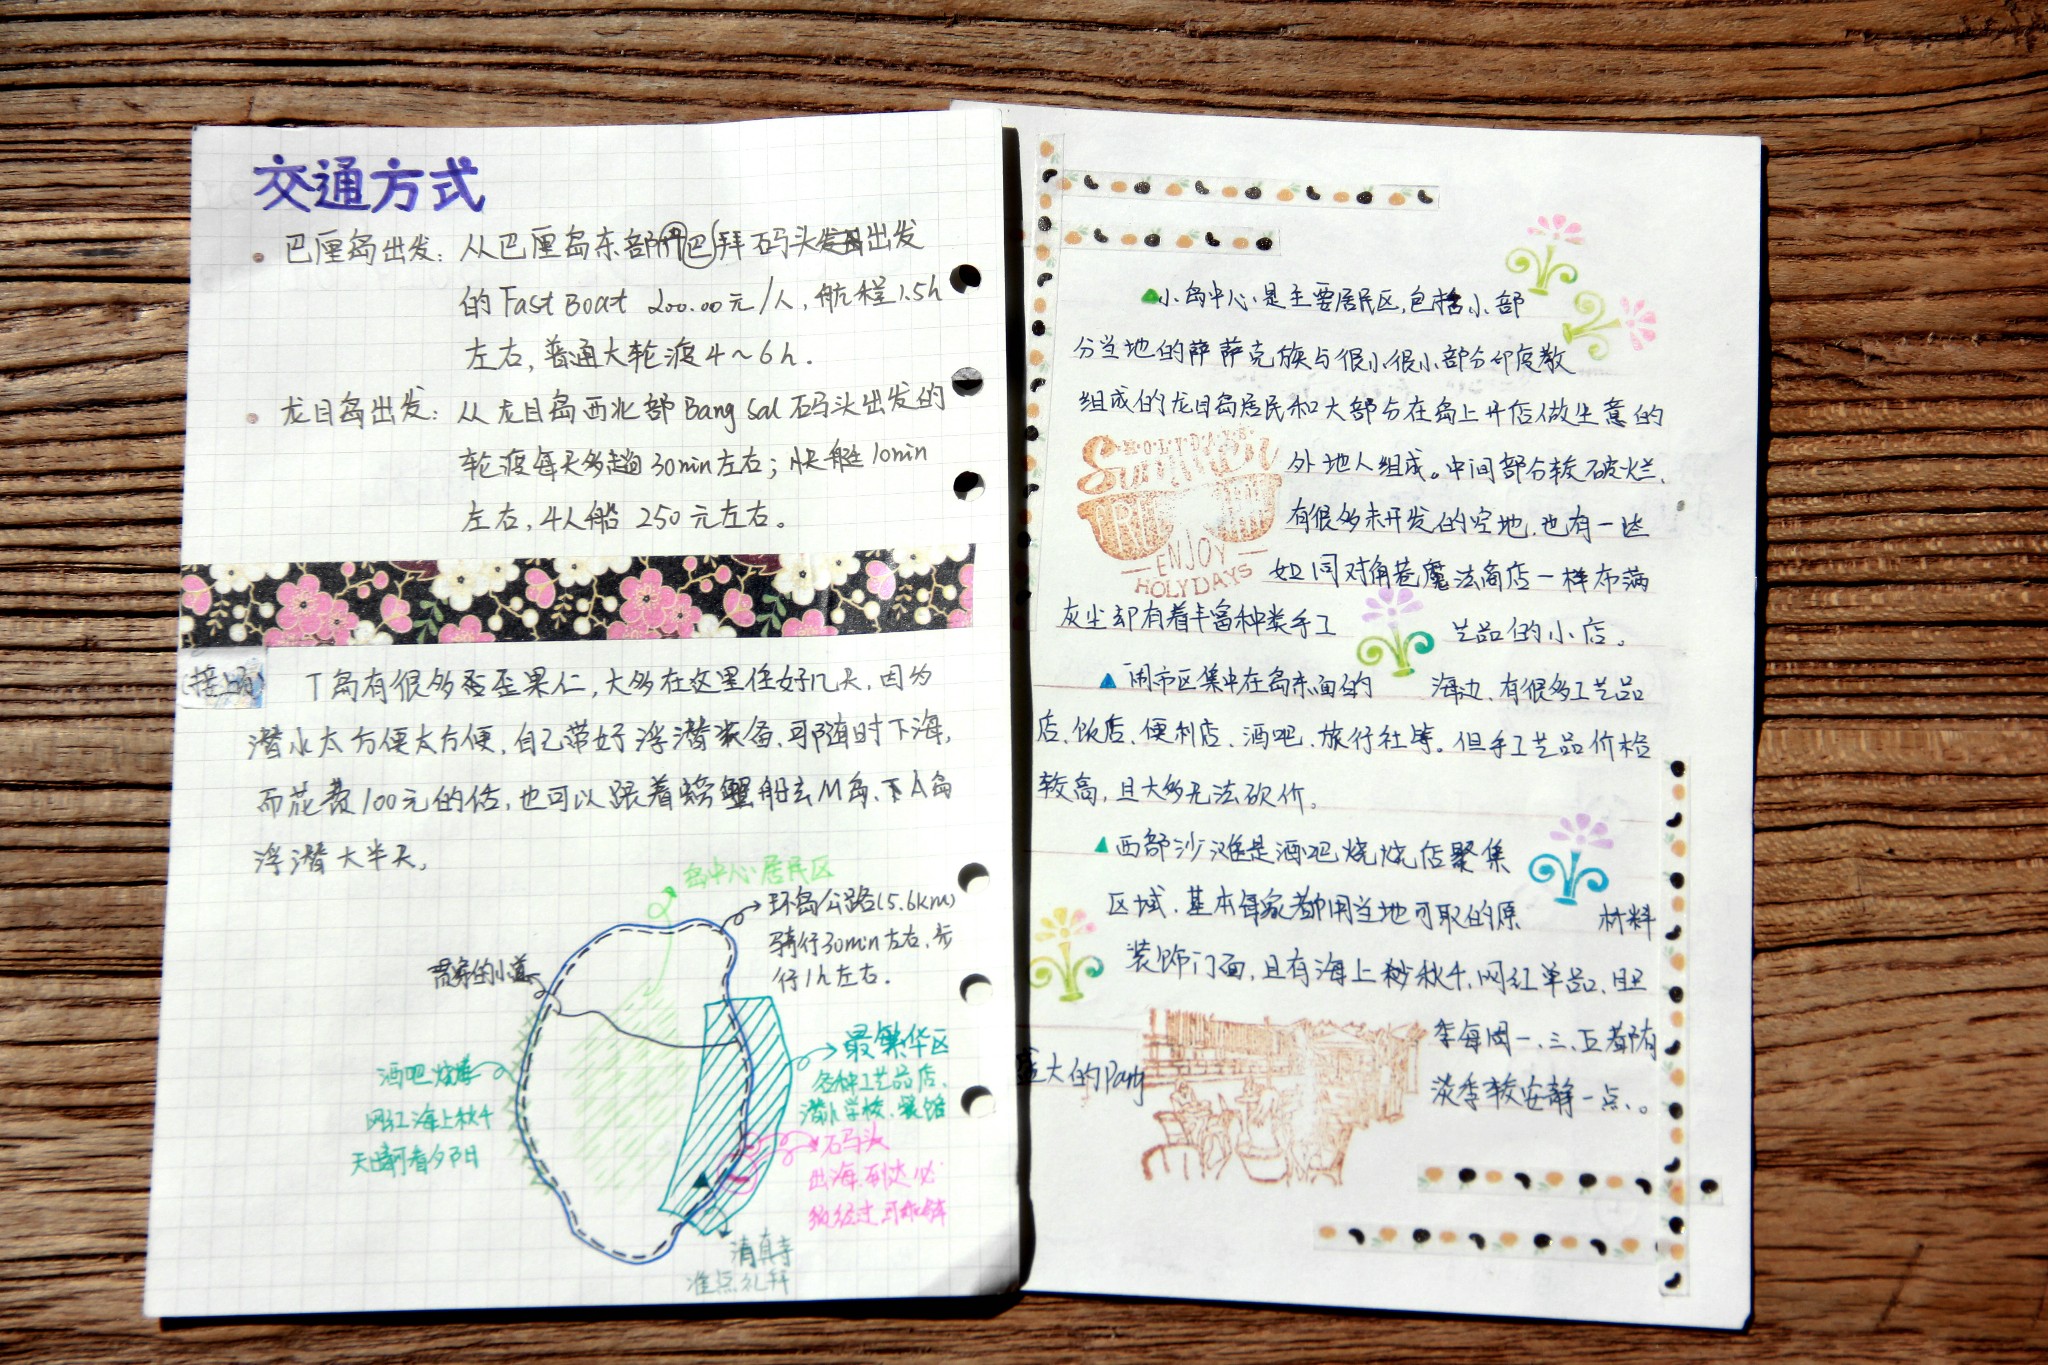 交通方式
巴厘岛出发：从巴厘岛东部巴拜码头出发
的Fast Boat 200.00元/人，航程1.5h
左右，普通大轮渡4~6h.
龙目岛出发：从龙目岛西北部Bang Sal码头出发的
轮渡每天多趟30min左右；快艇10min
左右，4人船 250元左右。
(接上页)
T岛有很多歪果仁，大多在这里住好几天，因为
潜水太方便太方便，自己带好浮潜装备、可随时下海，
而花费100元的话，也可以跟着螃蟹船去M岛、A岛
浮潜大半天。
岛中心居民区
环岛公路(5.6km)
骑行30min左右、步
行1h左右.
贯穿的小道
酒吧烧烤
网红海上秋千
天晴可看夕阳
最繁华区
各种工艺品店、
潜水学校、餐馆
码头
出海、到达必
须经过
清真寺
准点礼拜
小岛中心是主要居民区，包括小部
分当地的萨萨克族与很小很小部分印度教
组成的龙目岛居民和大部分在岛上开店做生意的
外地人组成。中间部分较破烂、
有很多未开发的空地，也有一些
如同对角巷魔法商店一样布满
灰尘却有着丰富种类手工 艺品的小店。
HOLIDAYS
Summer
ENJOY
HOLYDAYS
闹市区集中在岛东面的 海边、有很多工艺品
店、饭店、便利店、酒吧、旅行社等。但手工艺品价格
较高，且大多无法砍价。
西部沙滩是酒吧烧烤店聚集
区域、基本每家都用当地可取的原 材料
装饰门面，且有海上秋千、网红单品、旺
季每周一、三、五都有
盛大的Party
淡季较安静一点。